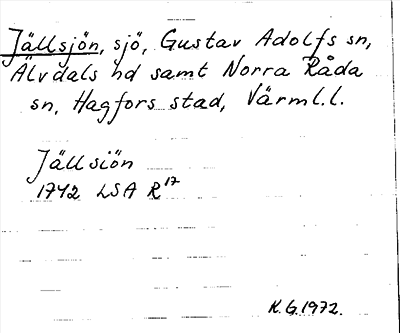 Jällsjön, sjö, Gustav Adolfs sn,
Älvdals hd samt Norra Råda
sn, Hagfors stad, Värml.l.
Jällsiön
1742 LSA R17
K.G.1972.